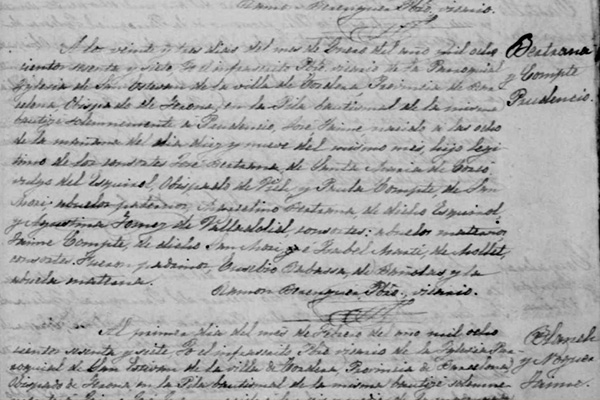 Ramon Berenguer Pbro, vicario.
A los veinte y tres dias del mes de Enero del año mil ocho
cientos sesenta y siete Yo el infrascrito Pbro vicario de la Parroquial
Iglesia de San Estevan de la villa de Tordera Provincia de Bar
celona Obispado de Gerona, en la Pila bautismal de la misma
bautizé solemnemente a Prudencio, José, Jaime nacido a las ocho
de la mañana del dia diez y nueve del mismo mes, hijo legi
timo de los consortes José Bertrana, de Santa Maria de Corcó
vulgo del Esquirol, Obispado de Vich, y Paula Compte, de San
Mori; abuelos paternos, Marcelino Bertrana, de dicho Esquirol
y Agustina Gomez de Valladolid, consortes: abuelos maternos
Jaime Compte, de dicho San Mori, y Isabel Marti, de Mollet,
consortes. Fueron padrinos, Eusebio de Bañolas y la
abuela materna.
Ramon Berenguer Pbro, vicario.
Bertrana
y Compte
Prudencio.
Al primero dia del mes de Febrero del año mil ocho
cientos sesenta y siete Yo el infrascrito Pbro vicario de la Iglesia Par
roquial de San Estevan de la villa de Tordera, Provincia de Barcelona,
Obispado de Gerona, en la Pila bautismal de la misma bautizé solemne
Blanch
y Noguera
Jaime.